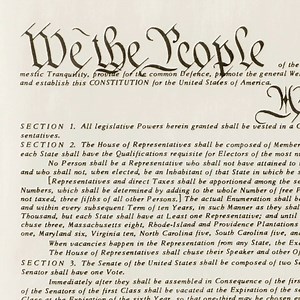 We the People of the
mestic Tranquility, provide for the common Defence, promote the general We
and establish this CONSTITUTION for the United States of America.
SECTION 1. All legislative Powers herein granted shall be vested in a C
sentatives.
SECTION 2. The House of Representatives shall be composed of Member
each State shall have the Qualifications requisite for Electors of the most n
No Person shall be a Representative who shall not have attained to
and who shall not, when elected, be an Inhabitant of that State in which he s
[Representatives and direct Taxes shall be apportioned among the se
Numbers, which shall be determined by adding to the whole Number of free P
not taxed, three fifths of all other Persons.] The actual Enumeration shall b
and within every subsequent Term of ten Years, in such Manner as they shal
Thousand, but each State shall have at Least one Representative; and until
chuse three, Massachusetts eight, Rhode-Island and Providence Plantations
one, Maryland six, Virginia ten, North Carolina five, South Carolina five, an
When vacancies happen in the Representation from any State, the Ex
The House of Representatives shall chuse their Speaker and other Of
SECTION 3. The Senate of the United States shall be composed of two Se
Senator shall have one Vote.
Immediately after they shall be assembled in Consequence of the firs
of the Senators of the first Class shall be vacated at the Expiration of the se
Class at the Expiration of the sixth Year, so that one-third may be chosen